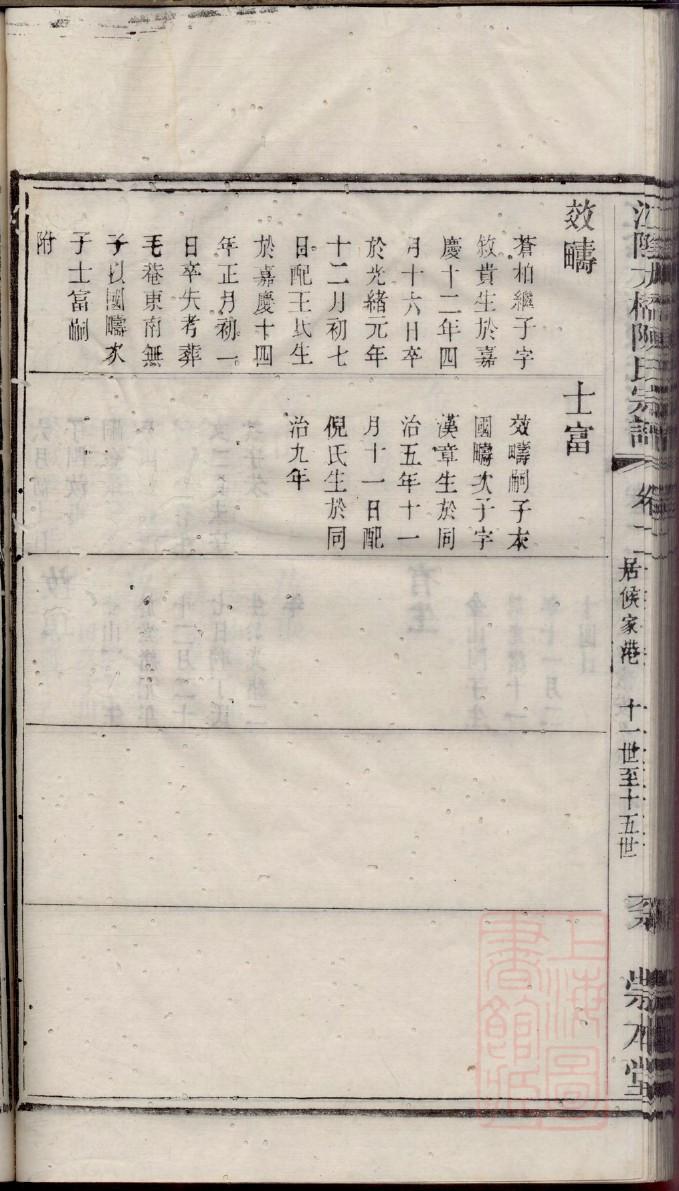 效疇
蒼柏繼子字
敘貴生於嘉
慶十二年四
月十六日卒
於光緒元年
十二月初七
日配王氏生
於嘉慶十四
年正月初一
日卒失考葬
毛巷東南無
子以國疇次
子士富嗣
附
士富
效疇嗣子本
國疇次子字
漢章生於同
治五年十一
月十一日配
倪氏生於同
治九年
陳氏宗譜
居候家港
十一世至十五世
崇本堂
上海圖書館